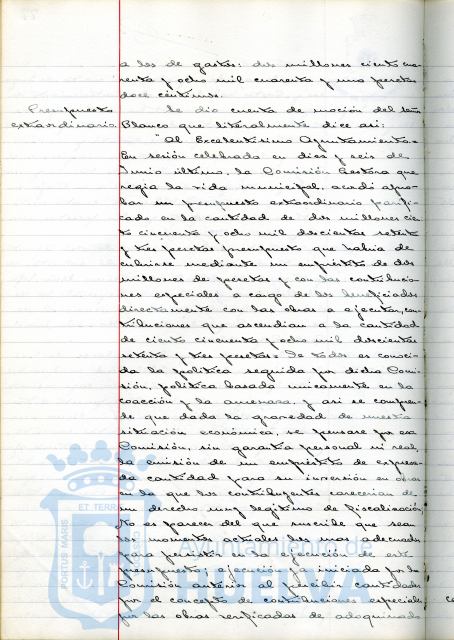 a los de gastos: dos millones ciento cua-
renta y ocho mil cuarenta y una pesetas
doce céntimos.
Presupuesto
extraordinario.
Se dio cuenta de moción del señor
Blanco que literalmente dice asi:
"Al Excelentisimo Ayuntamiento=
En sesión celebrada en diez y seis de
Junio último, la Comisión Gestora que
regia la vida municipal, acordó apro-
bar un presupuesto extraordinario
cado en la cantidad de dos millones cien-
to cincuenta y ocho mil doscientas setenta
y tres pesetas presupuesto que habia de
cubrirse mediante un empréstito de dos
millones de pesetas y con las contribucio-
nes especiales a cargo de los beneficiados
directamente con las obras a ejecutar, con-
tribuciones que ascendian a la cantidad
de ciento cincuenta y ocho mil doscientas
setenta y tres pesetas= De todos es conoci-
da la politica seguida por dicha Comi-
sión, politica basada unicamente en la
coacción y la amenaza, y asi se compren-
de que dada la gravedad de nuestra
situación económica, se pensase por esa
Comisión, sin garantia personal ni real,
la emisión de un empréstito de expresa-
da cantidad para su inversión en obras
en la que los contribuyentes carecerian de
un derecho muy legitimo de fiscalización,
No es parecer del que suscribe que sean
los momentos actuales los mas adecuados
para persistir en la ejecución de este
presupuesto; ejecución ya iniciada por la
Comisión anterior al percibir cantidades
por el concepto de contribuciones especiales
por las obras verificadas de adoquinado
ET TERRA
PORTUS MARIS
Ayuntamiento de
HUELVA